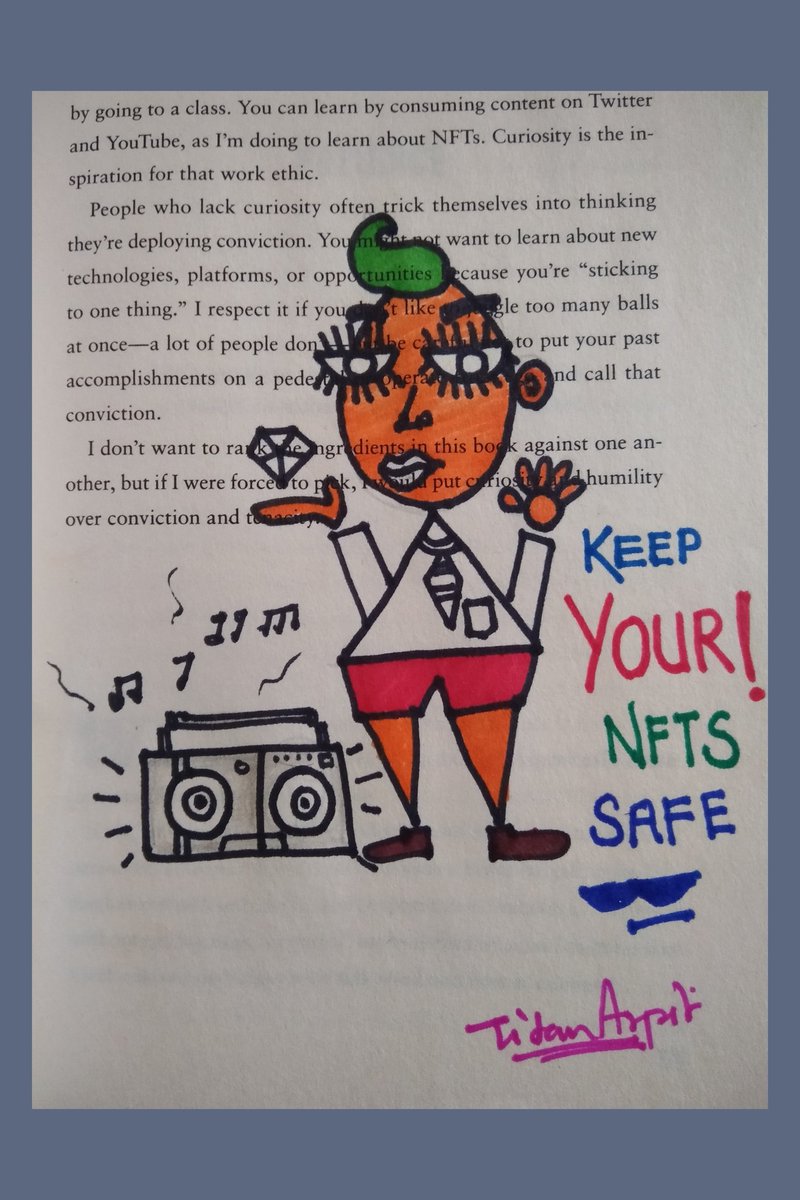 by going to a class. You can learn by consuming content on Twitter
and YouTube, as I'm doing to learn about NFTs. Curiosity is the in-
spiration for that work ethic.
People who lack curiosity often trick themselves into thinking
they're deploying conviction. You might not want to learn about new
technologies, platforms, or opportunities because you're “sticking
to one thing.” I respect it if you don't like to juggle too many balls
at once—a lot of people don't— to put your past
accomplishments on a pedestal, operate and call that
conviction.
I don't want to rank the ingredients in this book against one an-
other, but if I were forced to pick, I would put curiosity and humility
over conviction and tenacity.
KEEP
YOUR!
NFTS
SAFE
Titan Arpit